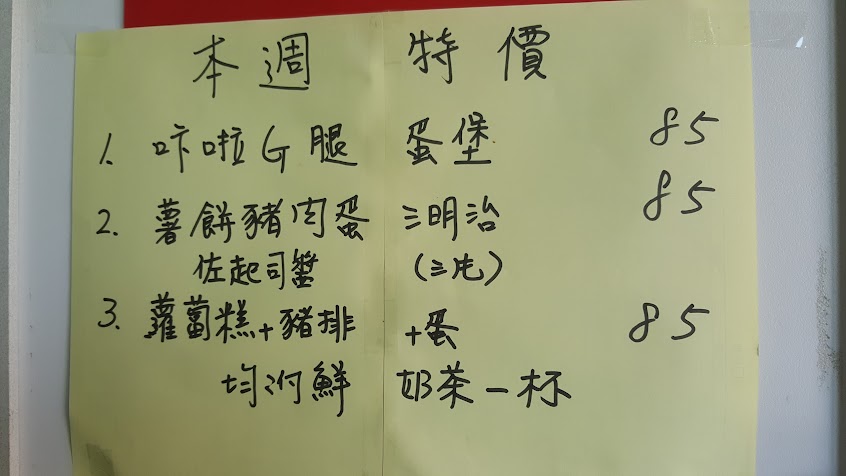 本週 特價
1. 咔啦G腿 蛋堡 85
2. 薯餅豬肉蛋 三明治 85
佐起司醬 (三片)
3. 蘿蔔糕+豬排 +蛋 85
均附鮮 奶茶一杯